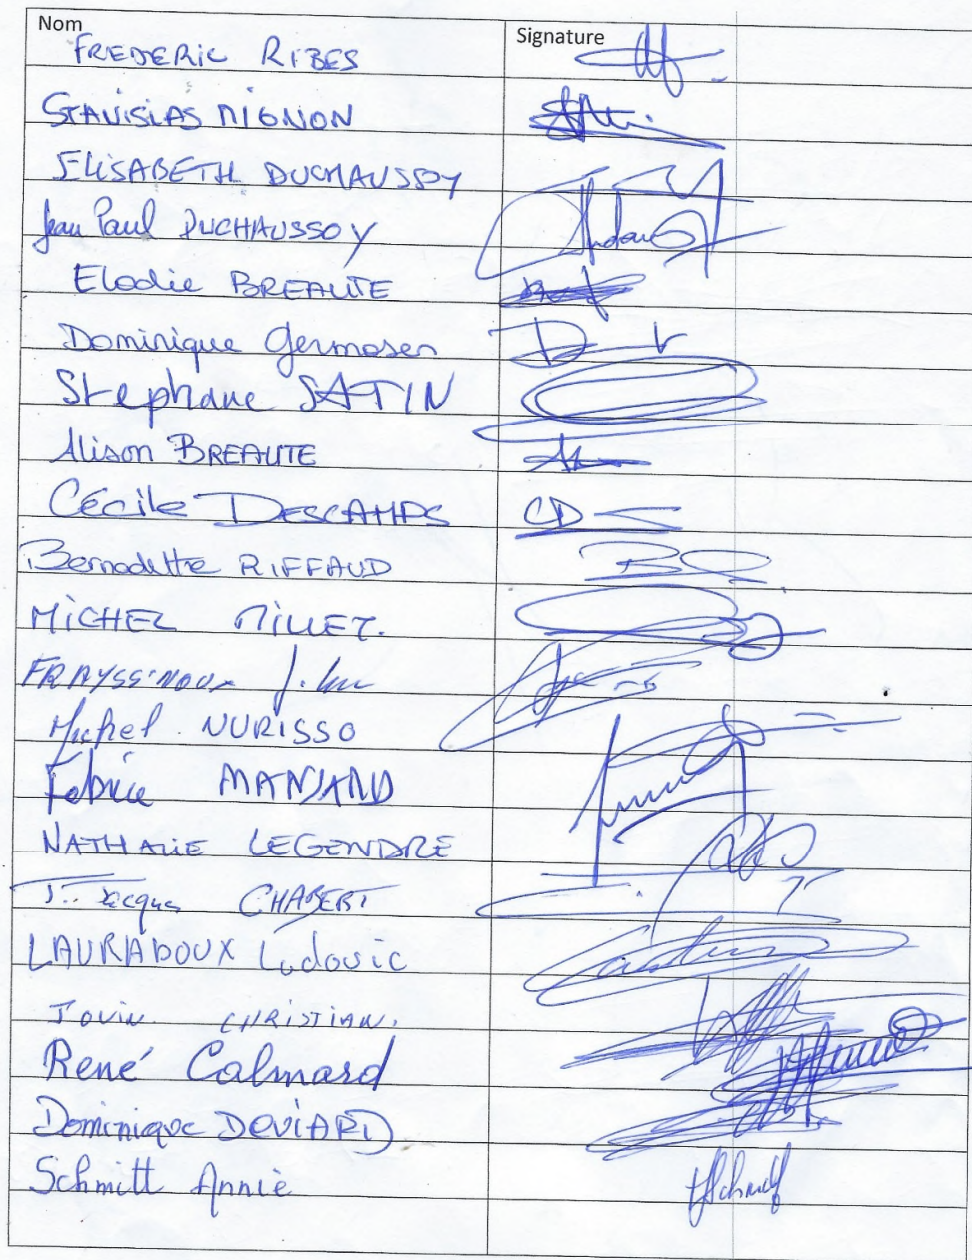 Nom Signature
FREDERIC RIBES
STANISLAS MIGNON
ELISABETH DUCHAUSSOY
Jean Paul DUCHAUSSOY
Elodie BREAUTE
Dominique Germosen
Stephane SATIN
Alison BREAUTE
Cécile DESCAMPS CD
Bernadette RIFFAUD
MICHEL MILLET.
FRAYSSINOUX J. Luc
Michel NURISSO
Fabrice MANSARD
NATHALIE LEGENDRE
J. Jacques CHABERT
LAURADOUX Ludovic
JOUIN CHRISTIAN.
René Calmard
Dominique DEVIARD
Schmitt Annie Schmitt